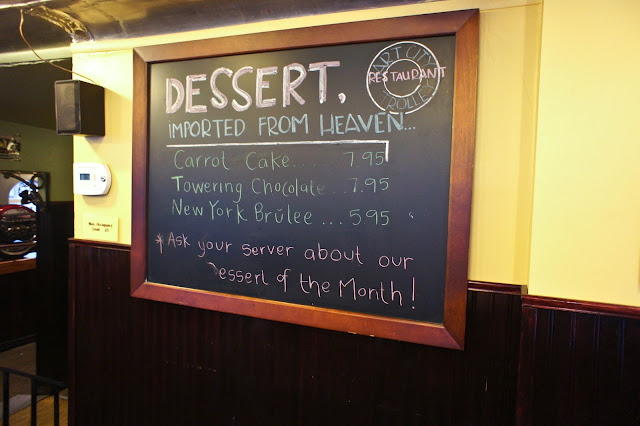 DESSERT,
IMPORTED FROM HEAVEN...
ART CITY
RESTAURANT
TROLLEY
Carrot Cake.... 7.95
Towering Chocolate...7.95
New York Brûlee ...5.95
* Ask your server about our
Dessert of the Month!